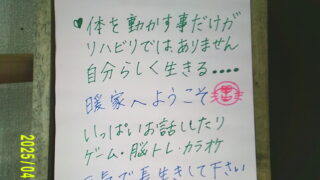 体を動かす事だけが
リハビリでは、ありません
自分らしく生きる....
暖家へようこそ
いっぱいお話したり
ゲーム・脳トレ・カラオケ
で長生きして下さい
2025/04